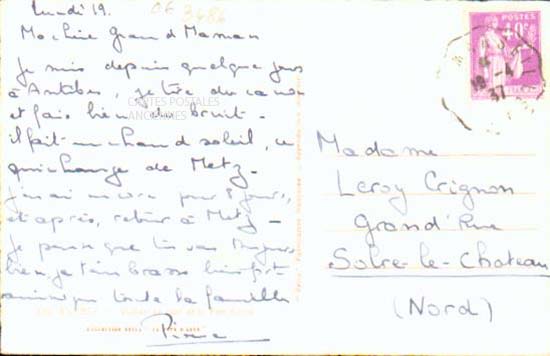 Lundi 19.
Ma chère Grand Maman
Je suis depuis quelques jours
à Antibes, je tire du canon
et fais bien du bruit.
il fait un chaud soleil, ce
qui change de Metz.
J'en ai encore pour 8 jours,
et après, retour à Metz
Je pense que tu vas toujours
bien. je t'embrasse bien fort
ainsi que toute la famille
Pierre
CARTES POSTALES
ANCIENNES
POSTES
40c
19-4
37
Madame
Leroy Crignon
Grand'Rue
Solre-le-Chateau
(Nord)